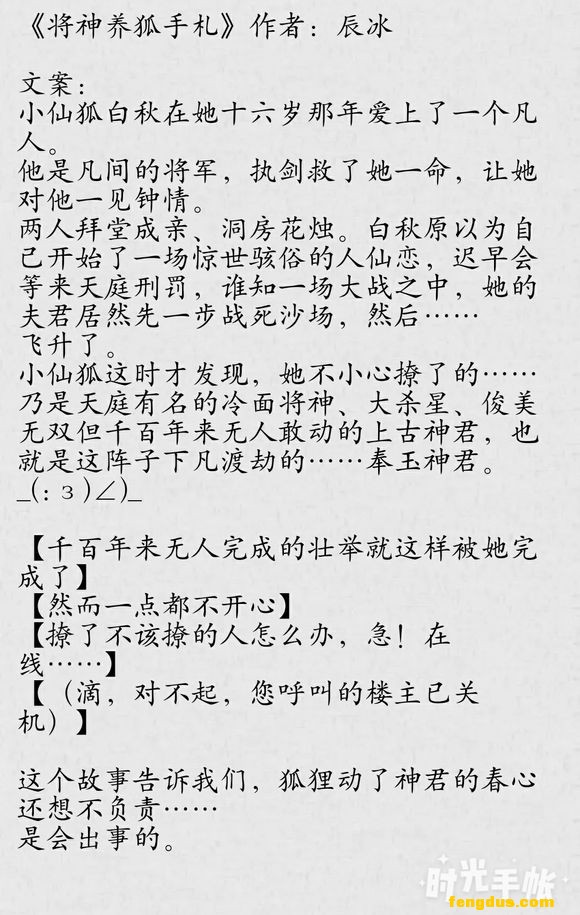 《将神养狐手札》作者：辰冰
文案：
小仙狐白秋在她十六岁那年爱上了一个凡
人。
他是凡间的将军，执剑救了她一命，让她
对他一见钟情。
两人拜堂成亲、洞房花烛。白秋原以为自
己开始了一场惊世骇俗的人仙恋，迟早会
等来天庭刑罚，谁知一场大战之中，她的
夫君居然先一步战死沙场，然后……
飞升了。
小仙狐这时才发现，她不小心撩了的……
乃是天庭有名的冷面将神、大杀星、俊美
无双但千百年来无人敢动的上古神君，也
就是这阵子下凡渡劫的……奉玉神君。
_(:з)∠)_
【千百年来无人完成的壮举就这样被她完
成了】
【然而一点都不开心】
【撩了不该撩的人怎么办，急！在
线……】
【（滴，对不起，您呼叫的楼主已关
机）】
这个故事告诉我们，狐狸动了神君的春心
还想不负责……
是会出事的。
时光手帐
fengdus.com